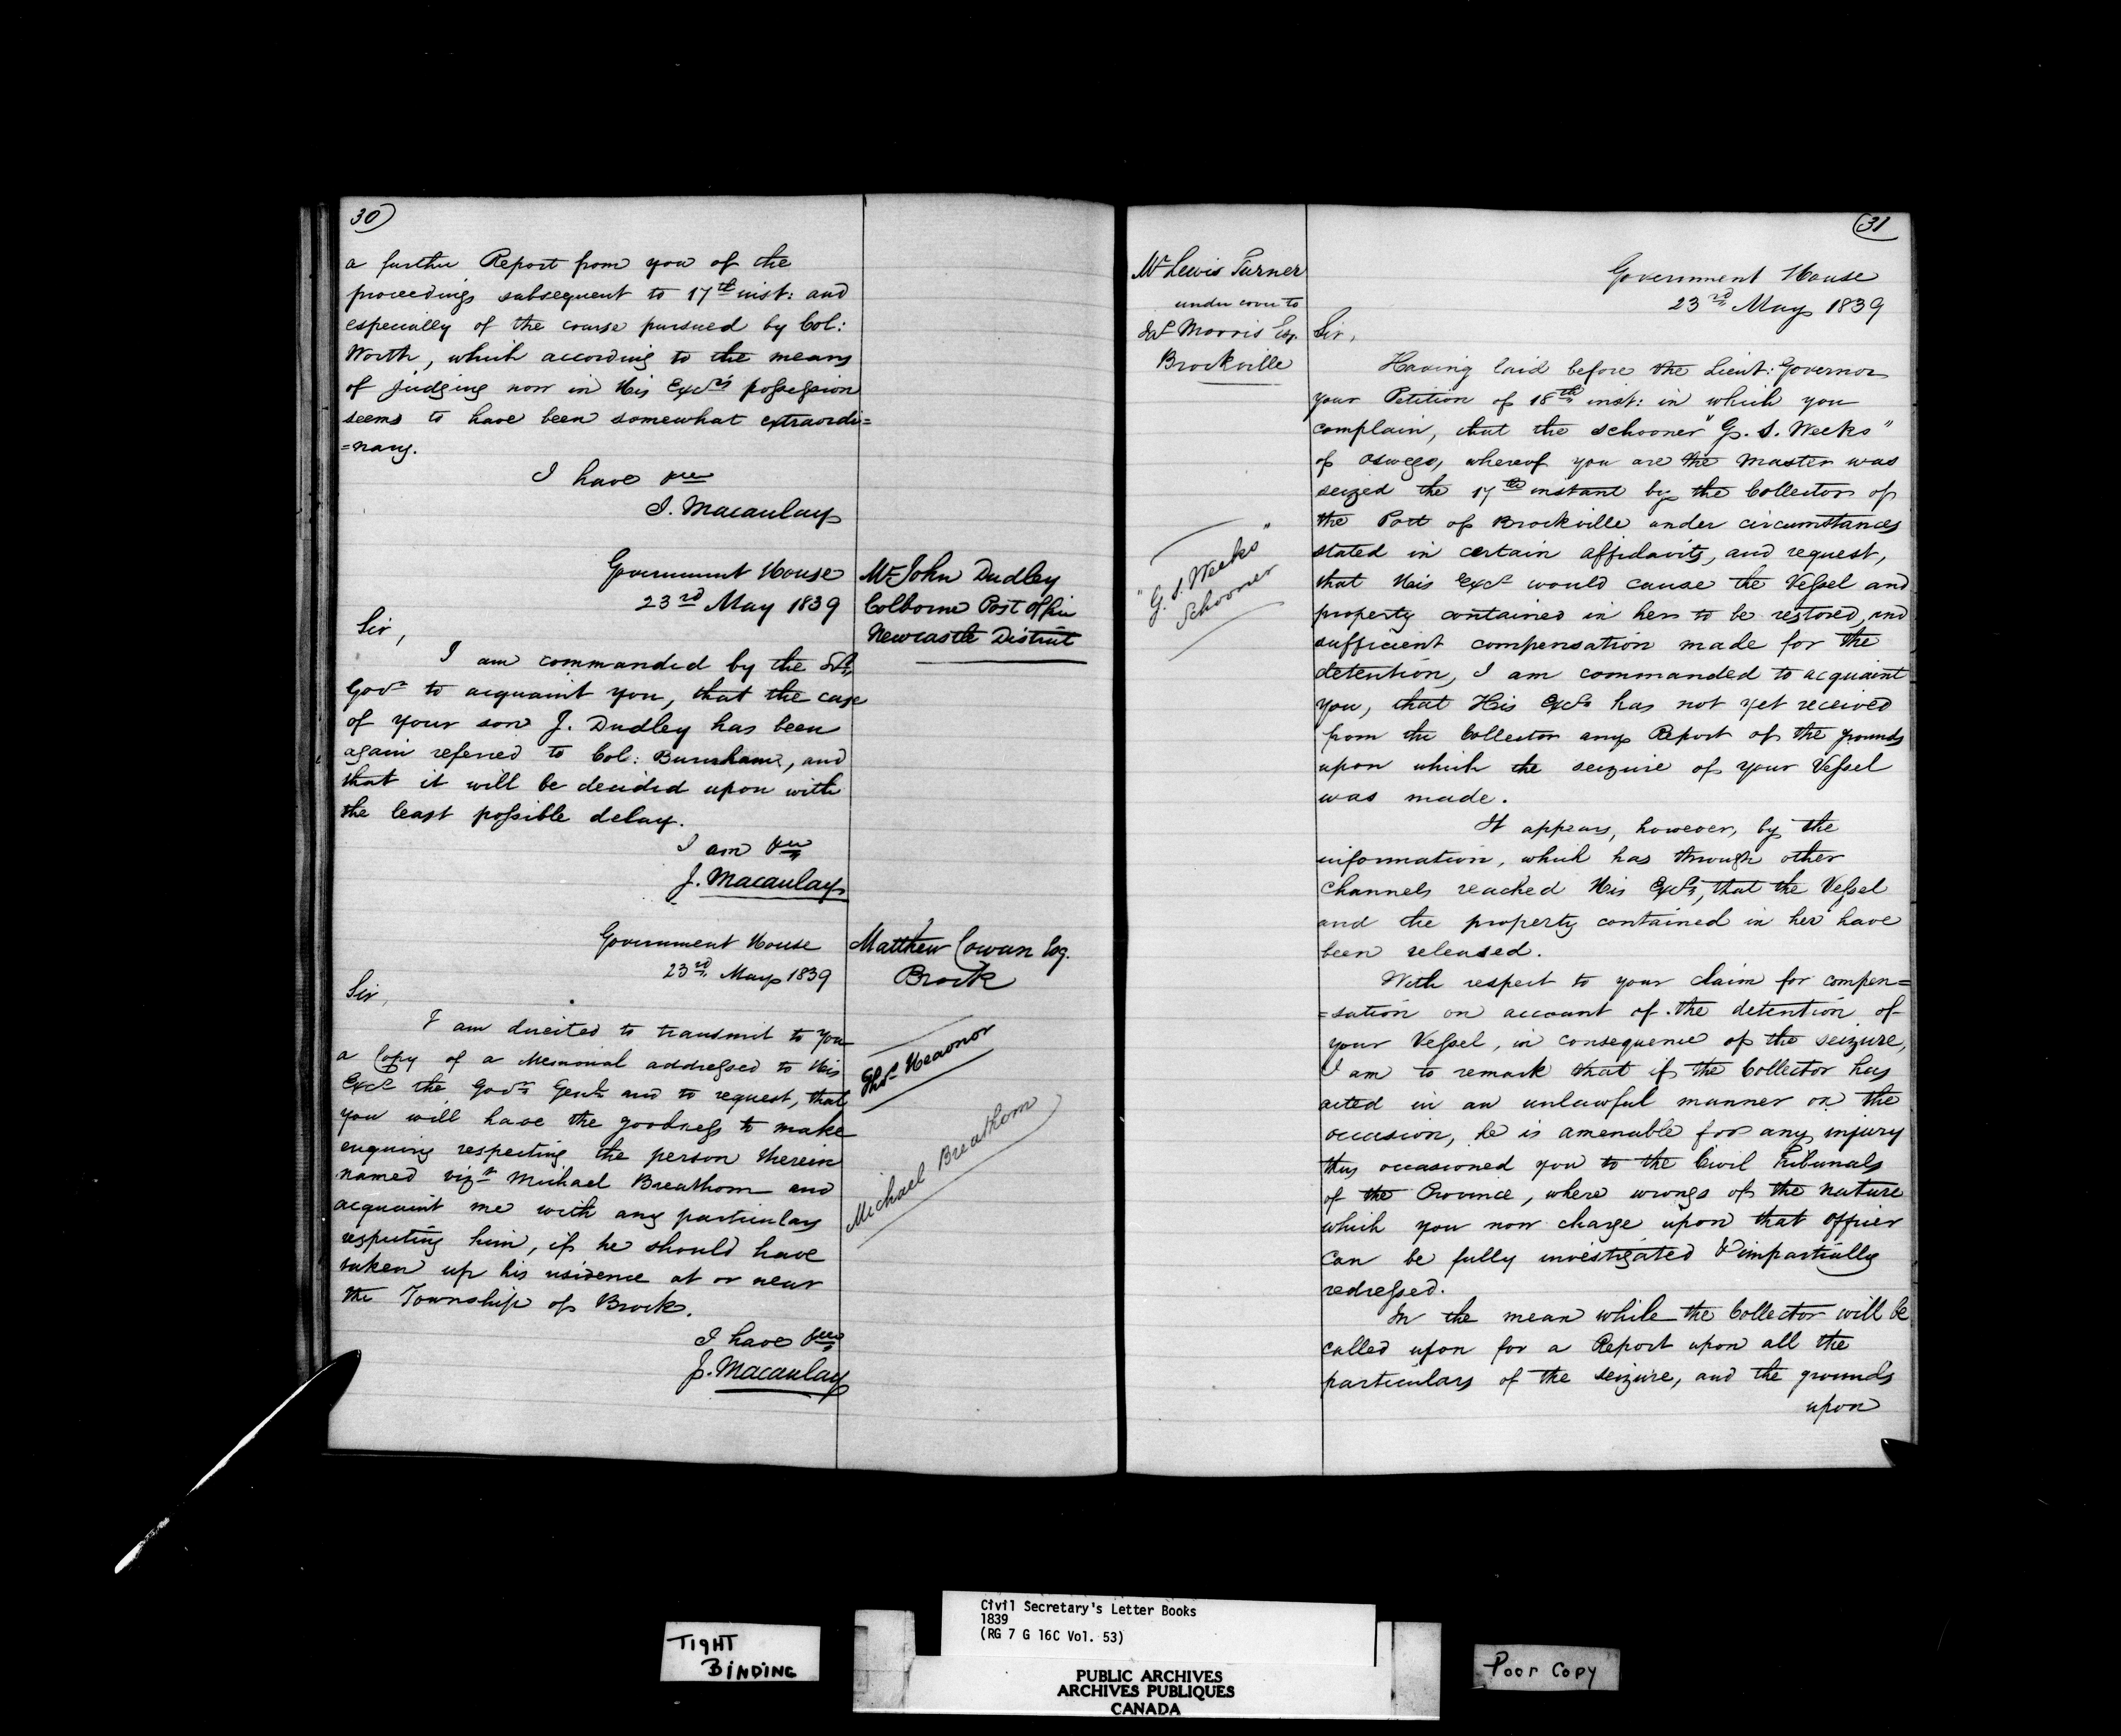 30
a further Report from you of the
proceedings subsequent to 17th inst: and
especially of the course pursued by Col:
Worth, which according to the means
of judging now in His Excy's possession
seems to have been somewhat extraordi=
=nary.
I have &c
J. Macaulay
Government House
23rd May 1839
Mr John Dudley
Colborne Post Office
Newcastle District
Sir,
I am commanded by the Lt.
Govr to acquaint you, that the case
of your son J. Dudley has been
again referred to Col: Burnham, and
that it will be decided upon with
the least possible delay.
I am &c
J. Macaulay
Government House
23rd May 1839
Matthew Cowan Esq.
Brock
Sir,
I am directed to transmit to you
a Copy of a Memorial addressed to His
Excy the Govr Genl and to request, that
you will have the goodness to make
enquiry respecting the person therein
named vizt Michael Breathom and
acquaint me with any particulars
respecting him, if he should have
taken up his residence at or near
the Township of Brock.
Thos Heaonor
Michael Breathom
I have &c
J. Macaulay
31
Mr Lewis Turner
under cover to
Jas Morris Esq.
Brockville
Government House
23rd May 1839
Sir,
Having laid before the Lieut: Governor
your Petition of 18th inst: in which you
complain, that the schooner "G. S. Weeks"
of Oswego, whereof you are the Master was
seized the 17th instant by the Collector of
the Port of Brockville under circumstances
stated in certain affidavits, and request,
that His Excy would cause the Vessel and
property contained in her to be restored, and
sufficient compensation made for the
detention, I am commanded to acquaint
you, that His Excy has not yet received
from the Collector any Report of the grounds
upon which the seizure of your Vessel
was made.
"G. S. Weeks"
Schooner
It appears, however, by the
information, which has through other
channels reached His Excy, that the Vessel
and the property contained in her have
been released.
With respect to your claim for compen=
=sation on account of the detention of
your Vessel, in consequence of the seizure,
I am to remark that if the Collector has
acted in an unlawful manner on the
occasion, he is amenable for any injury
thus occasioned you to the Civil Tribunals
of the Province, where wrongs of the nature
which you now charge upon that officer
can be fully investigated & impartially
redressed.
In the mean while the Collector will be
called upon for a Report upon all the
particulars of the seizure, and the grounds
upon
TIGHT
BINDING
Civil Secretary's Letter Books
1839
(RG 7 G 16C Vol. 53)
PUBLIC ARCHIVES
ARCHIVES PUBLIQUES
CANADA
Poor Copy